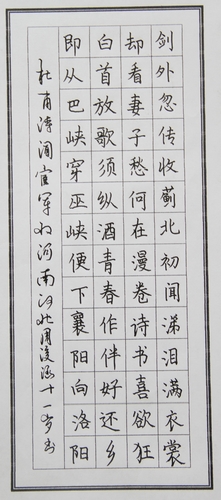 剑外忽传收蓟北初闻涕泪满衣裳
却看妻子愁何在漫卷诗书喜欲狂
白首放歌须纵酒青春作伴好还乡
即从巴峡穿巫峡便下襄阳向洛阳
杜甫诗闻官军收河南河北周凌涵十一岁书